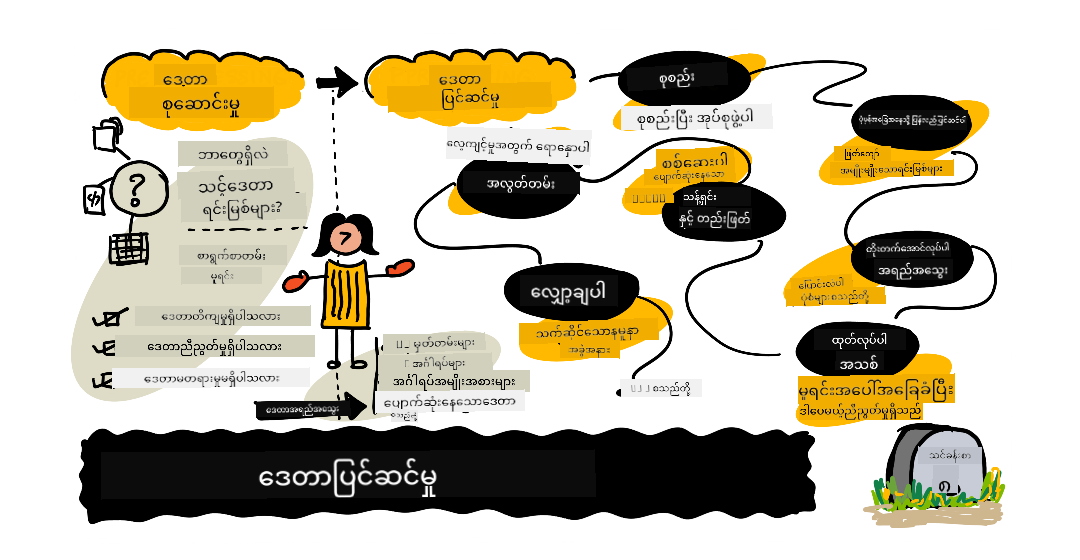 ဒေတာ
စုဆောင်းမှု
ဘာတွေရှိလဲ
သင့်ဒေတာ
ရင်းမြစ်များ?
စာရွက်စာတမ်း
မူရင်း
ဒေတာတိကျမှုရှိပါသလား
ဒေတာညီညွတ်မှုရှိပါသလား
ဒေတာမတရားမှုမရှိပါသလား
ဒေတာ
ပြင်ဆင်မှု
မှတ်တမ်းများ
အင်္ဂါရပ်များ
အင်္ဂါရပ်အမျိုးအစားများ
ပျောက်ဆုံးနေသောဒေတာ
ဒေတာအရည်အသွေး
စုစည်း
စုစည်းပြီး အုပ်စုဖွဲ့ပါ
ဖြတ်ကျော်
အမျိုးမျိုးသောရင်းမြစ်များ
တိုးတက်အောင်လုပ်ပါ
အရည်အသွေး
ပြောင်းလဲပါ
ပုံစံများစသည်တို့
ထုတ်လုပ်ပါ
အသစ်
မူရင်းအပေါ်အခြေခံပြီး
ဒါပေမယ့်ညီညွတ်မှုရှိသည်
စစ်ဆေးပါ
ပျောက်ဆုံးနေသော
သန့်ရှင်း
နှင့် တည်းဖြတ်
လေ့ကျင့်မှုအတွက် ရောနှောပါ
အလွတ်တမ်း
လျှော့ချပါ
သက်ဆိုင်သောနမူနာ
အခွဲအနား
စသည်တို့
ဒေတာပြင်ဆင်မှု
သင်ခန်းစာ
၇